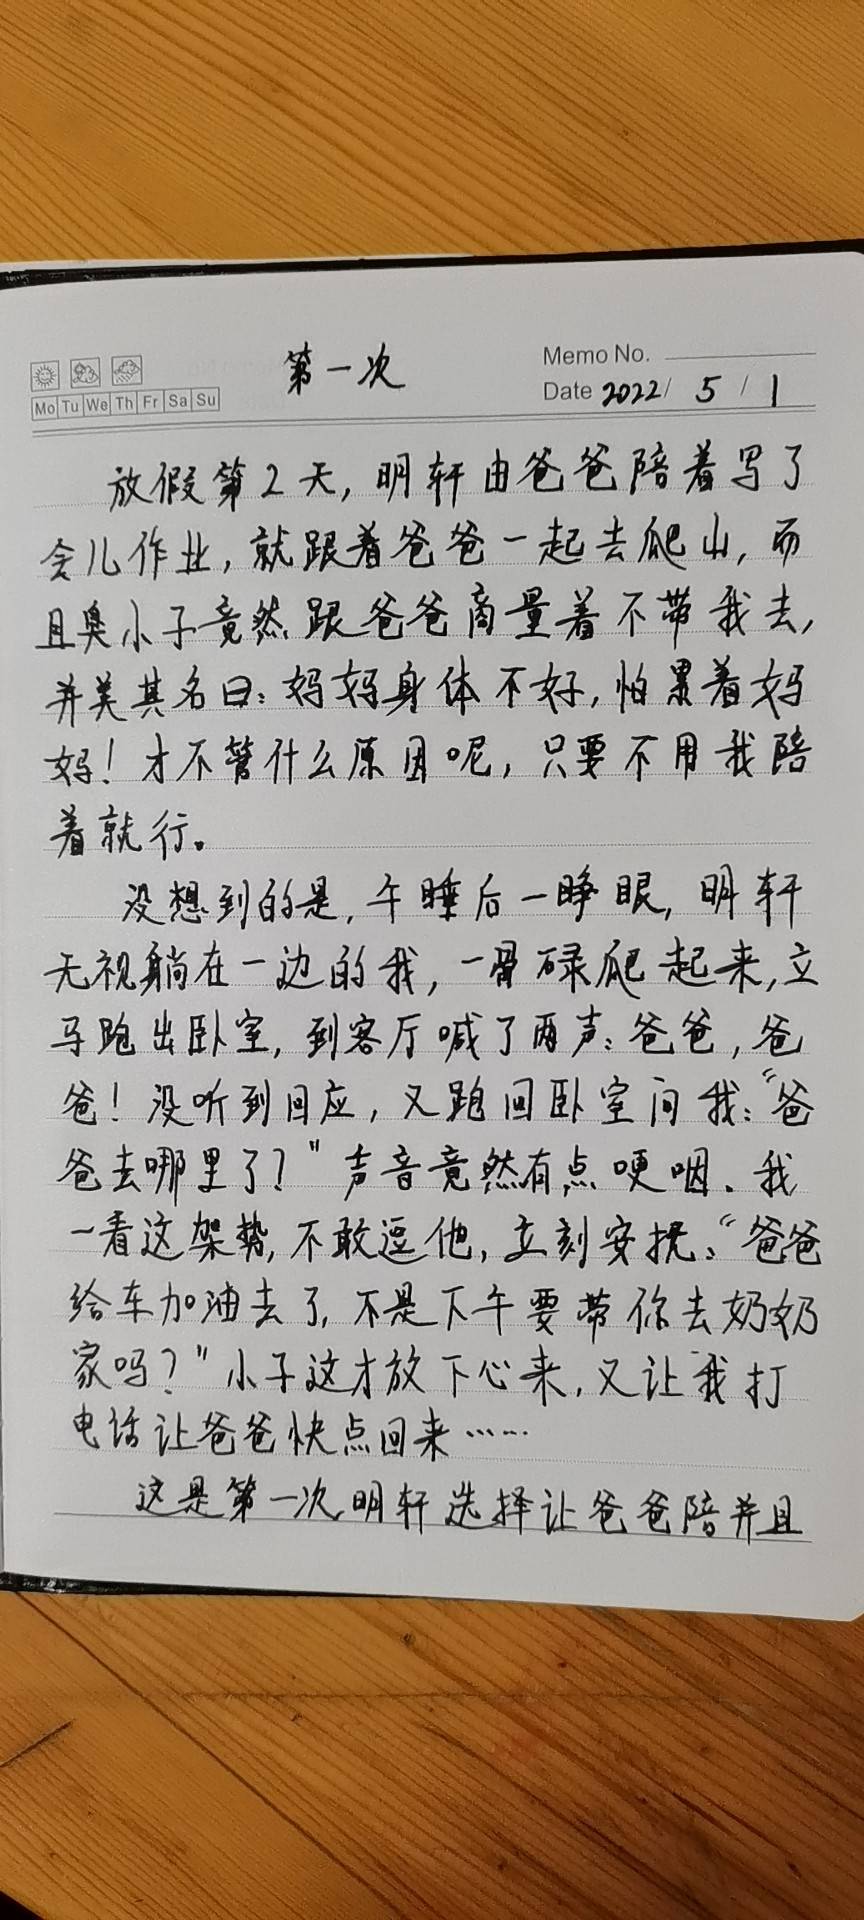 第一次
Memo No.
Date 2022/ 5 / 1
Mo Tu We Th Fr Sa Su
放假第2天,明轩由爸爸陪着写了
会儿作业,就跟着爸爸一起去爬山,而
且臭小子竟然跟爸爸商量着不带我去,
并美其名曰:妈妈身体不好,怕累着妈
妈!才不管什么原因呢,只要不用我陪
着就行。
没想到的是,午睡后一睁眼,明轩
无视躺在一边的我,一骨碌爬起来,立
马跑出卧室,到客厅喊了两声:爸爸,爸
爸!没听到回应,又跑回卧室问我:“爸
爸去哪里了?”声音竟然有点哽咽。我
一看这架势,不敢逗他,立刻安抚:“爸爸
给车加油去了,不是下午要带你去奶奶
家吗?”小子这才放下心来,又让我打
电话让爸爸快点回来……
这是第一次明轩选择让爸爸陪并且